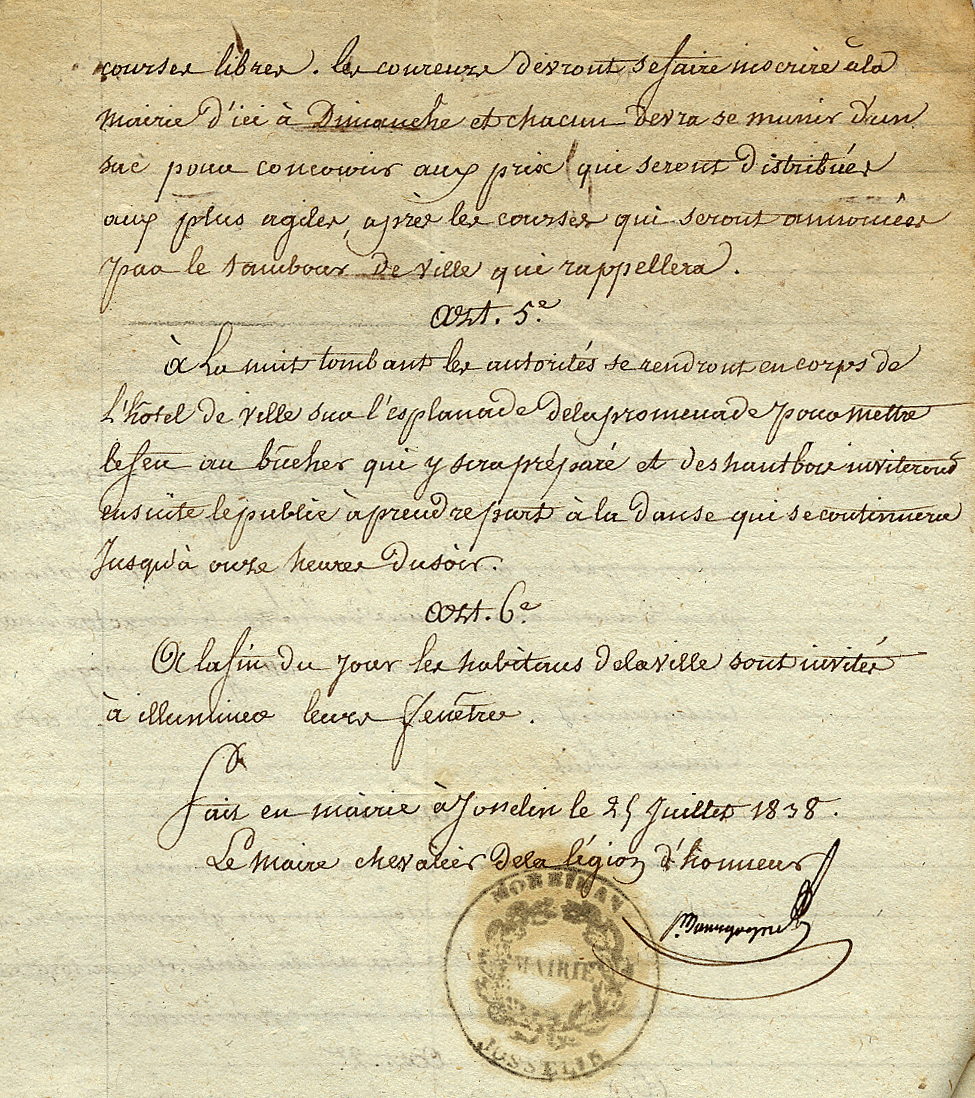 courses libres. les coureurs devront se faire inscrire à la
mairie d'ici à Dimanche et chacun devra se munir d'un
sac pour concourir aux prix qui seront distribués
aux plus agiles, après les courses qui seront annoncées
par le tambour de ville qui rappellera.
Art. 5e
à La nuit tombant les autorités se rendront en corps de
l'hôtel de ville sur l'esplanade de la promenade pour mettre
le feu au bûcher qui y sera préparé et des hautbois inviteront
ensuite le public à prendre part à la danse qui se continuera
Jusqu'à onze heures du soir.
Art. 6e
A la fin du jour les habitans de la ville sont invités
à illuminer leurs fenêtres.
fait en mairie à Josselin le 25 Juillet 1838.
Le Maire chevalier de la légion d'honneur
MORBIHAN
MAIRIE
JOSSELIN